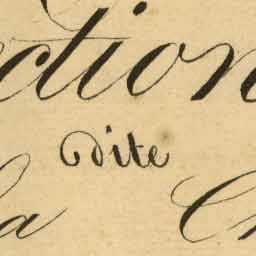 ction
dite
la C